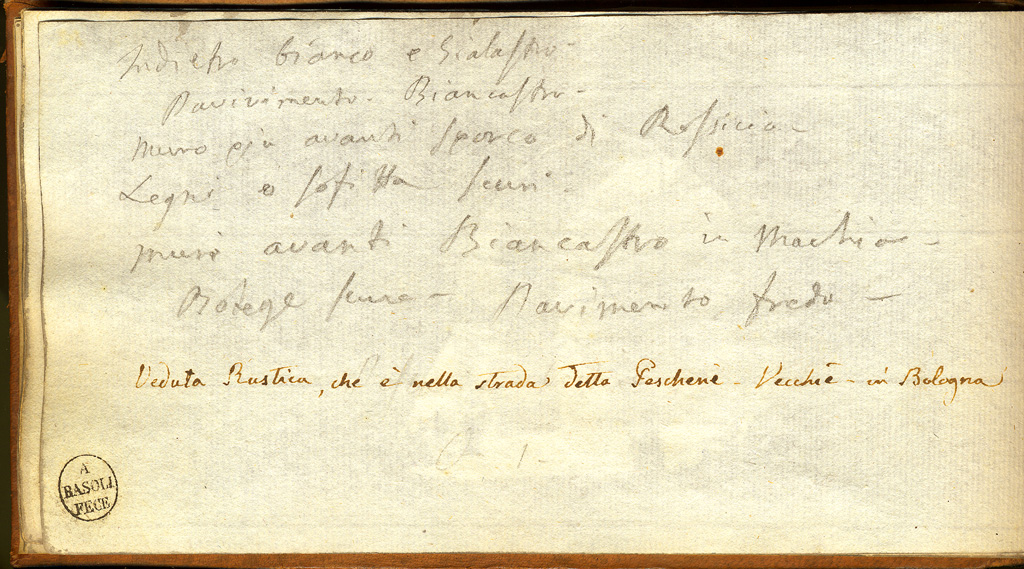 Indietro bianco e Gialastro -
Pavivimento - Biancastro -
muro più avanti sporco di Rossicia -
Legni e sofitta scuri -
muri avanti Biancastro in Machia -
Botege scure - Pavimento fredo -
Veduta Rustica, che è nella strada detta Pescherie - Vecchie - in Bologna
1 -
A
BASOLI
FECE